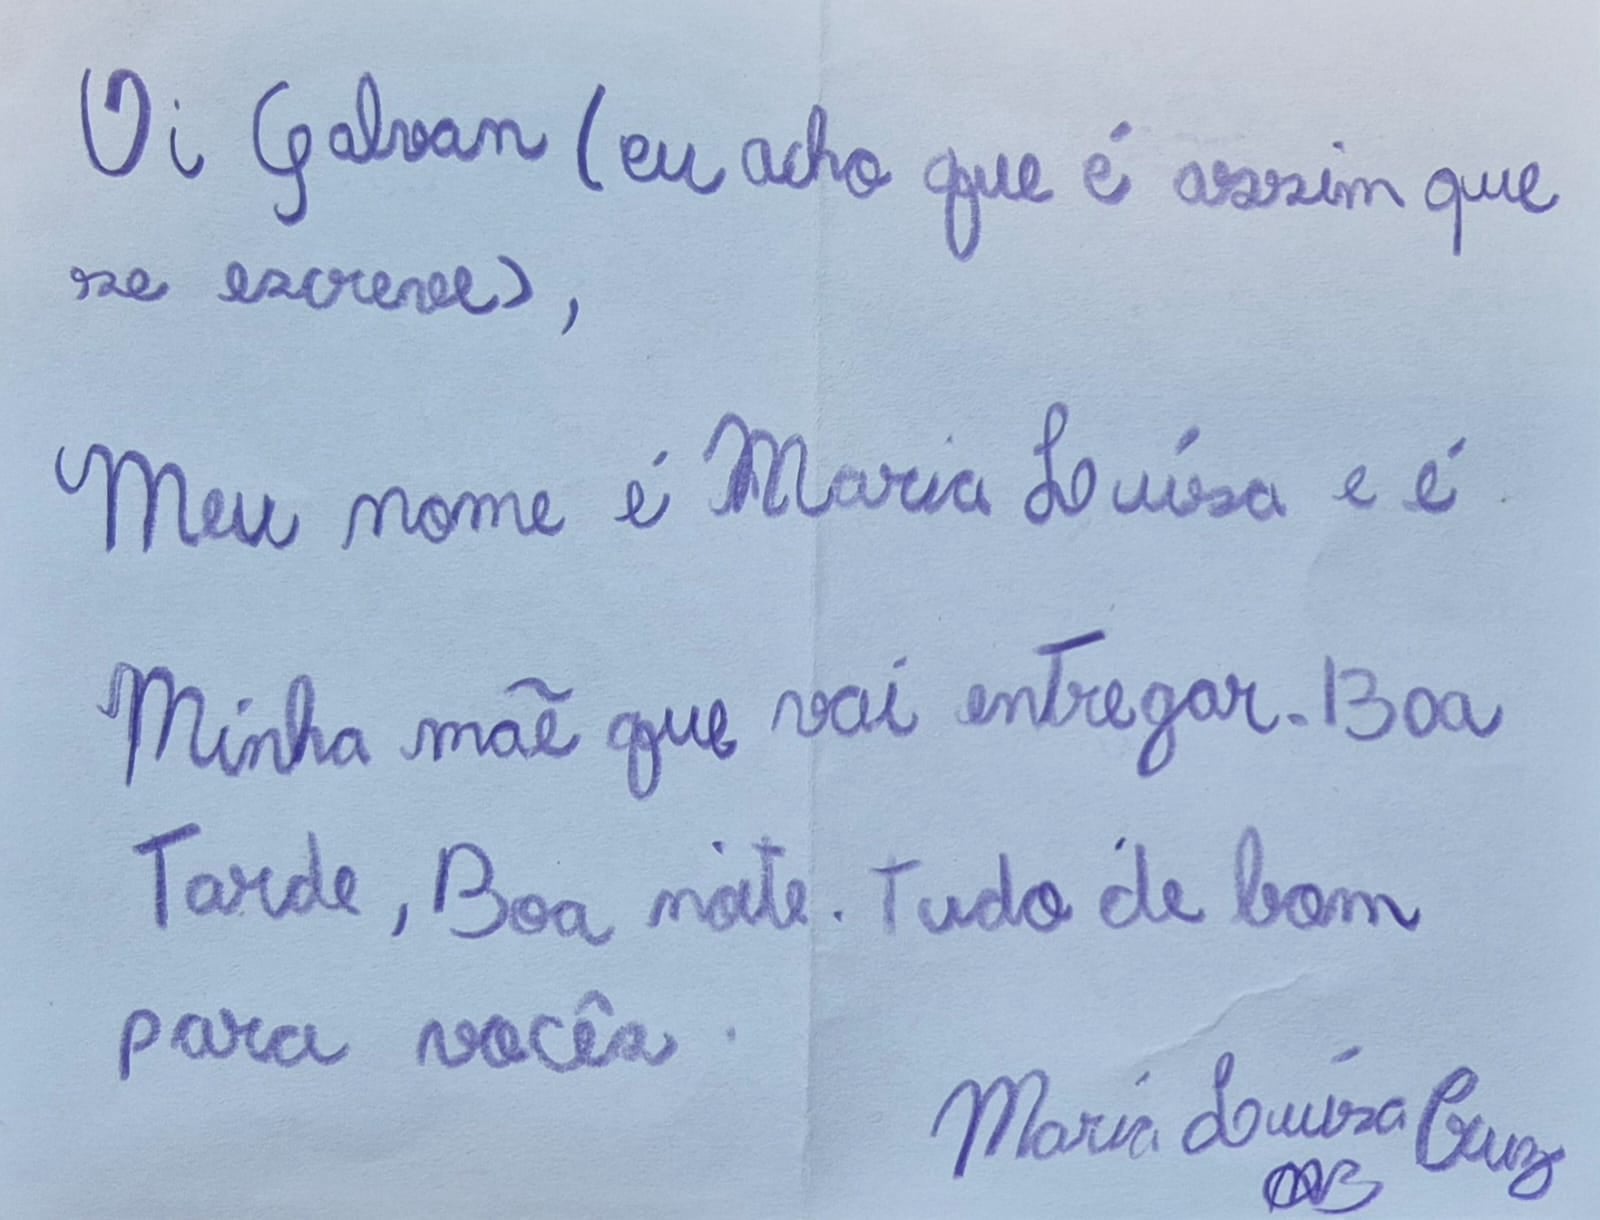 Oi Galvan (eu acho que é assim que
se escreve),
Meu nome é Maria Luísa e é
Minha mãe que vai entregar. Boa
Tarde, Boa noite. Tudo de bom
para vocês.
Maria Luísa Cruz